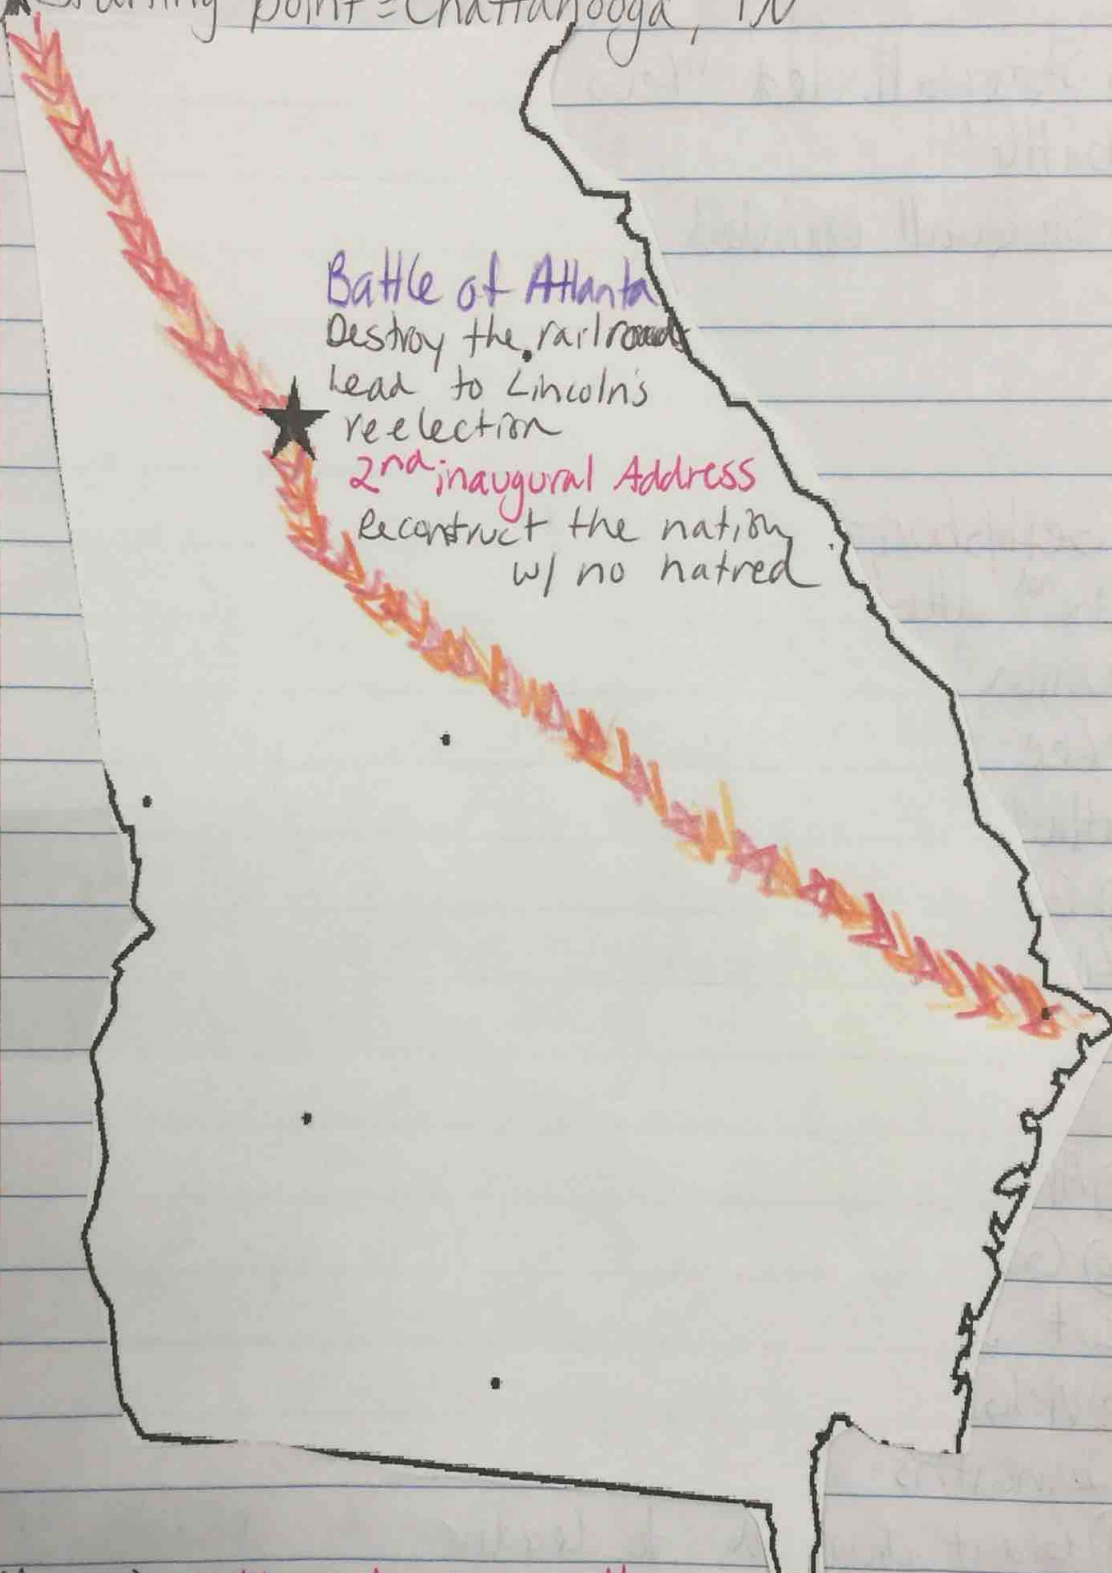 Starting point = Chattanooga, TN
Battle of Atlanta
Destroy the railroads
Lead to Lincoln's
reelection
2nd inaugural Address
Reconstruct the nation
w/ no hatred